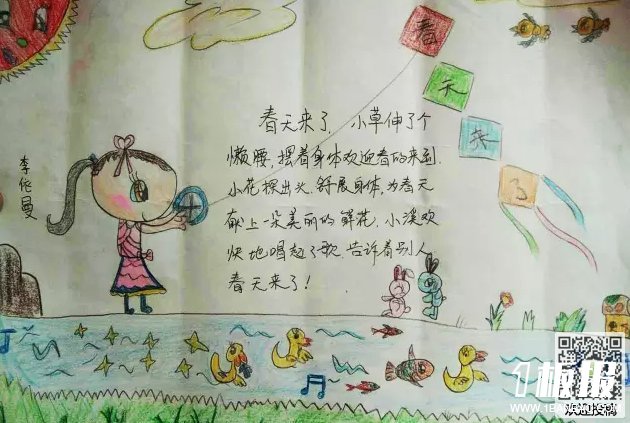 春
天
来
了
春天来了，小草伸了个
懒腰，摆着身体欢迎春的来到.
小花探出头，舒展身体，为春天
献上一朵美丽的鲜花.小溪欢
快地唱起了歌.告诉着别人
春天来了！
1板报
欢迎投稿